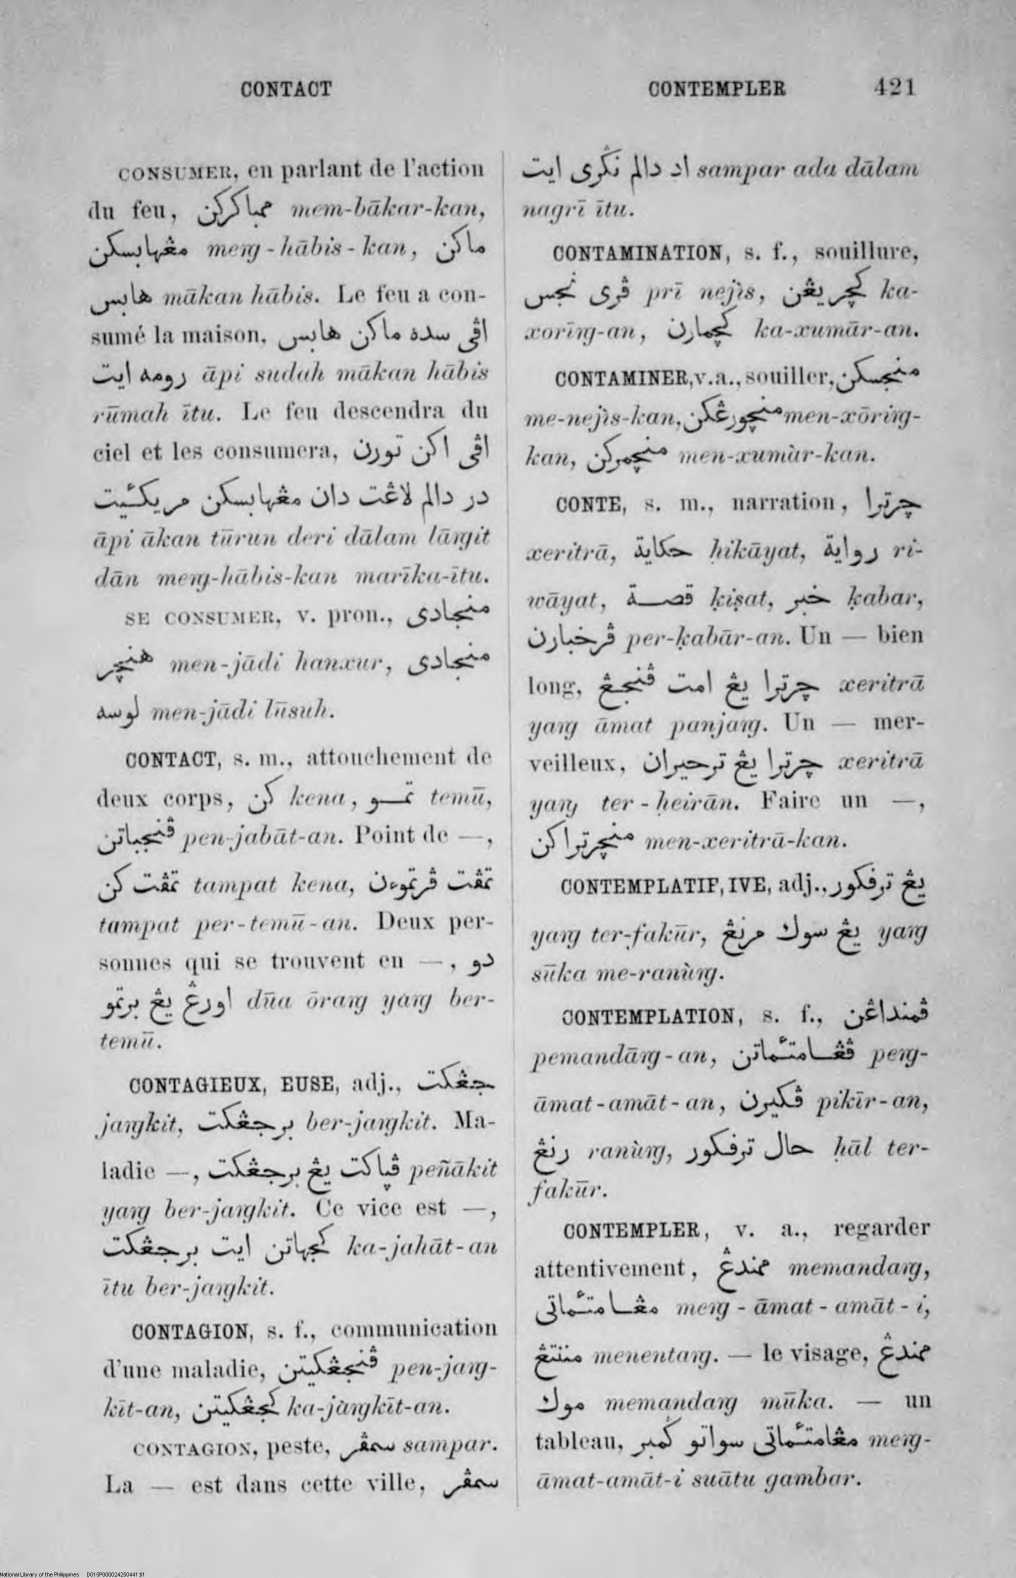 CONTACT CONTEMPLER 421
CONSUMER, en parlant de l'action
du feu, ممباكركن mem-bākar-kan,
مڠهابسكن meng-hābis-kan, ماكن
هابس mākan hābis. Le feu a con-
sumé la maison, اڤي سده ماكن هابس
رومه ايت āpi sudah mākan hābis
rūmah ītu. Le feu descendra du
ciel et les consumera, اڤي اكن تورن
در دالم لاڠت دان مڠهابسكن مريكئيت
āpi ākan tūrun deri dālam lāngit
dān meng-hābis-kan marīka-ītu.
SE CONSUMER, v. pron., منجادى
هنچر men-jādi hanxur, منجادى
لوسه men-jādi lūsuh.
CONTACT, s. m., attouchement de
deux corps, كن kena, تمو temū,
ڤنجباتن pen-jabāt-an. Point de —,
تمڤت كن tampat kena, تمڤت ڤرتموءن
tampat per-temū-an. Deux per-
sonnes qui se trouvent en —, دو
اورڠ يڠ برتمو dūa ōrang yang ber-
temū.
CONTAGIEUX, EUSE, adj., جڠكت
jangkit, برجڠكت ber-jangkit. Ma-
ladie —, ڤپاكت يڠ برجڠكت peñākit
yang ber-jangkit. Ce vice est —,
كجهاتن ايت برجڠكت ka-jahāt-an
ītu ber-jangkit.
CONTAGION, s. f., communication
d'une maladie, ڤنجڠكيتن pen-jang-
kīt-an, كجڠكيتن ka-jàngkīt-an.
CONTAGION, peste, سمڤر sampar.
La — est dans cette ville, سمڤر
اد دالم نڬرى ايت sampar ada dālam
nagrī ītu.
CONTAMINATION, s. f., souillure,
ڤرى نجس prī nejis, كچريڠن ka-
xorīng-an, كچمارن ka-xumār-an.
CONTAMINER, v. a., souiller, منجسكن
me-nejis-kan, منچورڠكن men-xōring-
kan, منچمركن men-xumàr-kan.
CONTE, s. m., narration, چرترا
xeritrā, حكاية ḥikāyat, رواية ri-
wāyat, قصة ḳiṣat, خبر ḳabar,
ڤرخبارن per-ḳabār-an. Un — bien
long, چرترا يڠ امت ڤنجڠ xeritrā
yang āmat panjang. Un — mer-
veilleux, چرترا يڠ ترحيران xeritrā
yang ter-ḥeirān. Faire un —,
منچرتراكن men-xeritrā-kan.
CONTEMPLATIF, IVE, adj., يڠ ترفكور
yang ter-fakūr, يڠ سوك مرنڠ yang
sūka me-ranùng.
CONTEMPLATION, s. f., ڤمنداڠن
pemandāng-an, ڤڠامتئماتن peng-
āmat-amāt-an, ڤكيرن pikīr-an,
رنڠ ranùng, حال ترفكور ḥāl ter-
fakūr.
CONTEMPLER, v. a., regarder
attentivement, ممندڠ memandang,
مڠامتئماتى meng-āmat-amāt-i,
مننتڠ menentang. — le visage, ممندڠ
موك memandang mūka. — un
tableau, مڠامتئماتى سواتو ڬمبر meng-
āmat-amāt-i suātu gambar.
National Library of the Philippines